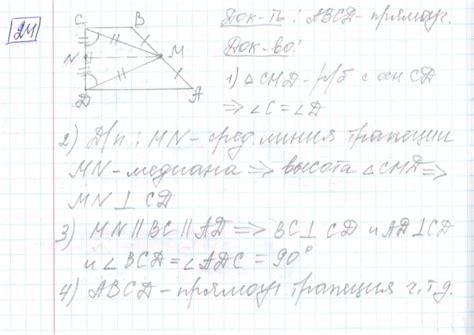 24
C B
N M
D A
Док-ть: ABCD-прямоуг.
Док-во:
1) △CMD-р/б с осн CD
⇒ ∠C=∠D
2) Д/п: MN-сред. линия трапеции
MN-медиана ⇒ высота △CMD ⇒
MN ⊥ CD
3) MN ∥ BC ∥ AD ⇒ BC ⊥ CD и AD ⊥ CD
и ∠BCD = ∠ADC = 90°
4) ABCD-прямоуг трапеция ч.т.д.